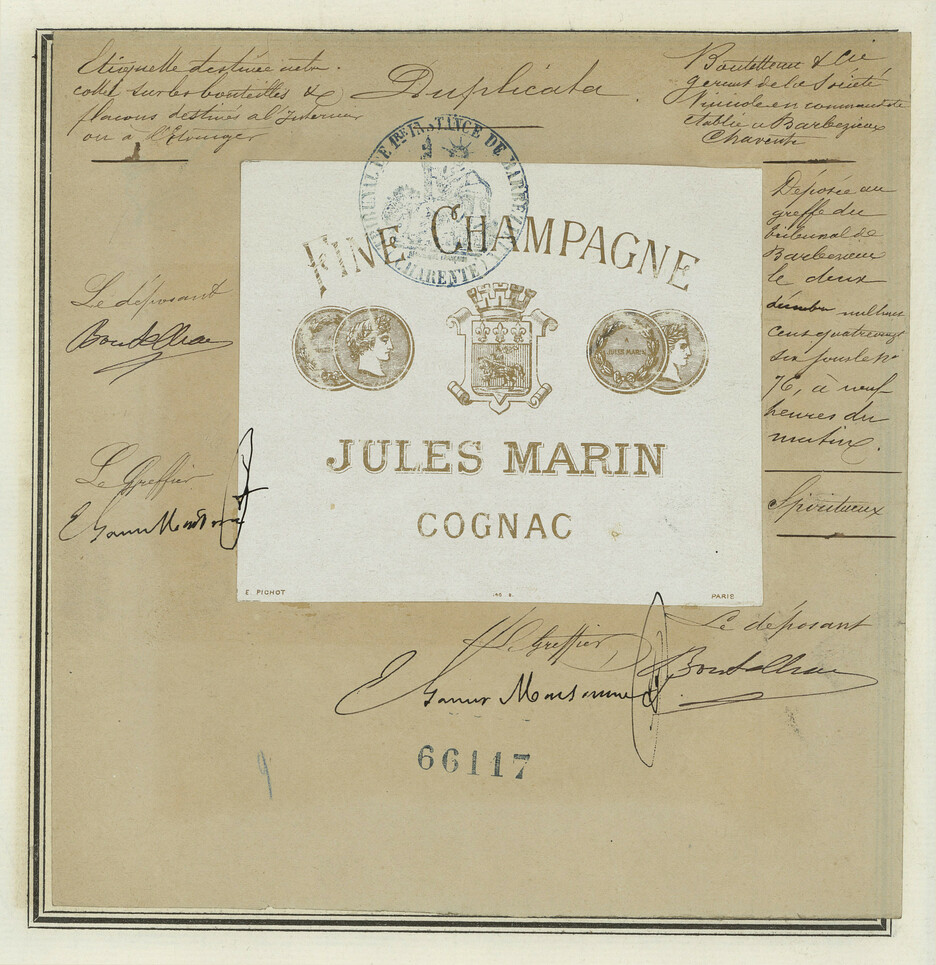 Etiquette destinée à être
collée sur les bouteilles &
flacons destinés à l'Interieur
ou à l'Etranger
Duplicata
Boutelleau & Cie
gerant de la Société
Vinicole en commandite
etablie a Barbezieux
Charente
TRIBUNAL DE 1RE INSTANCE DE BARBEZIEUX
CHARENTE
FINE CHAMPAGNE
A
JULES MARIN
JULES MARIN
COGNAC
E PICHOT
PARIS
Déposée au
greffe du
tribunal de
Barbezieux
le deux
mil huit
cent quatre vingt
six sous le No
76, à neuf
heures du
matin.
Spiritueux
Le déposant
Boutelleau
Le Greffier
Le Greffier
Le déposant
Boutelleau
66117